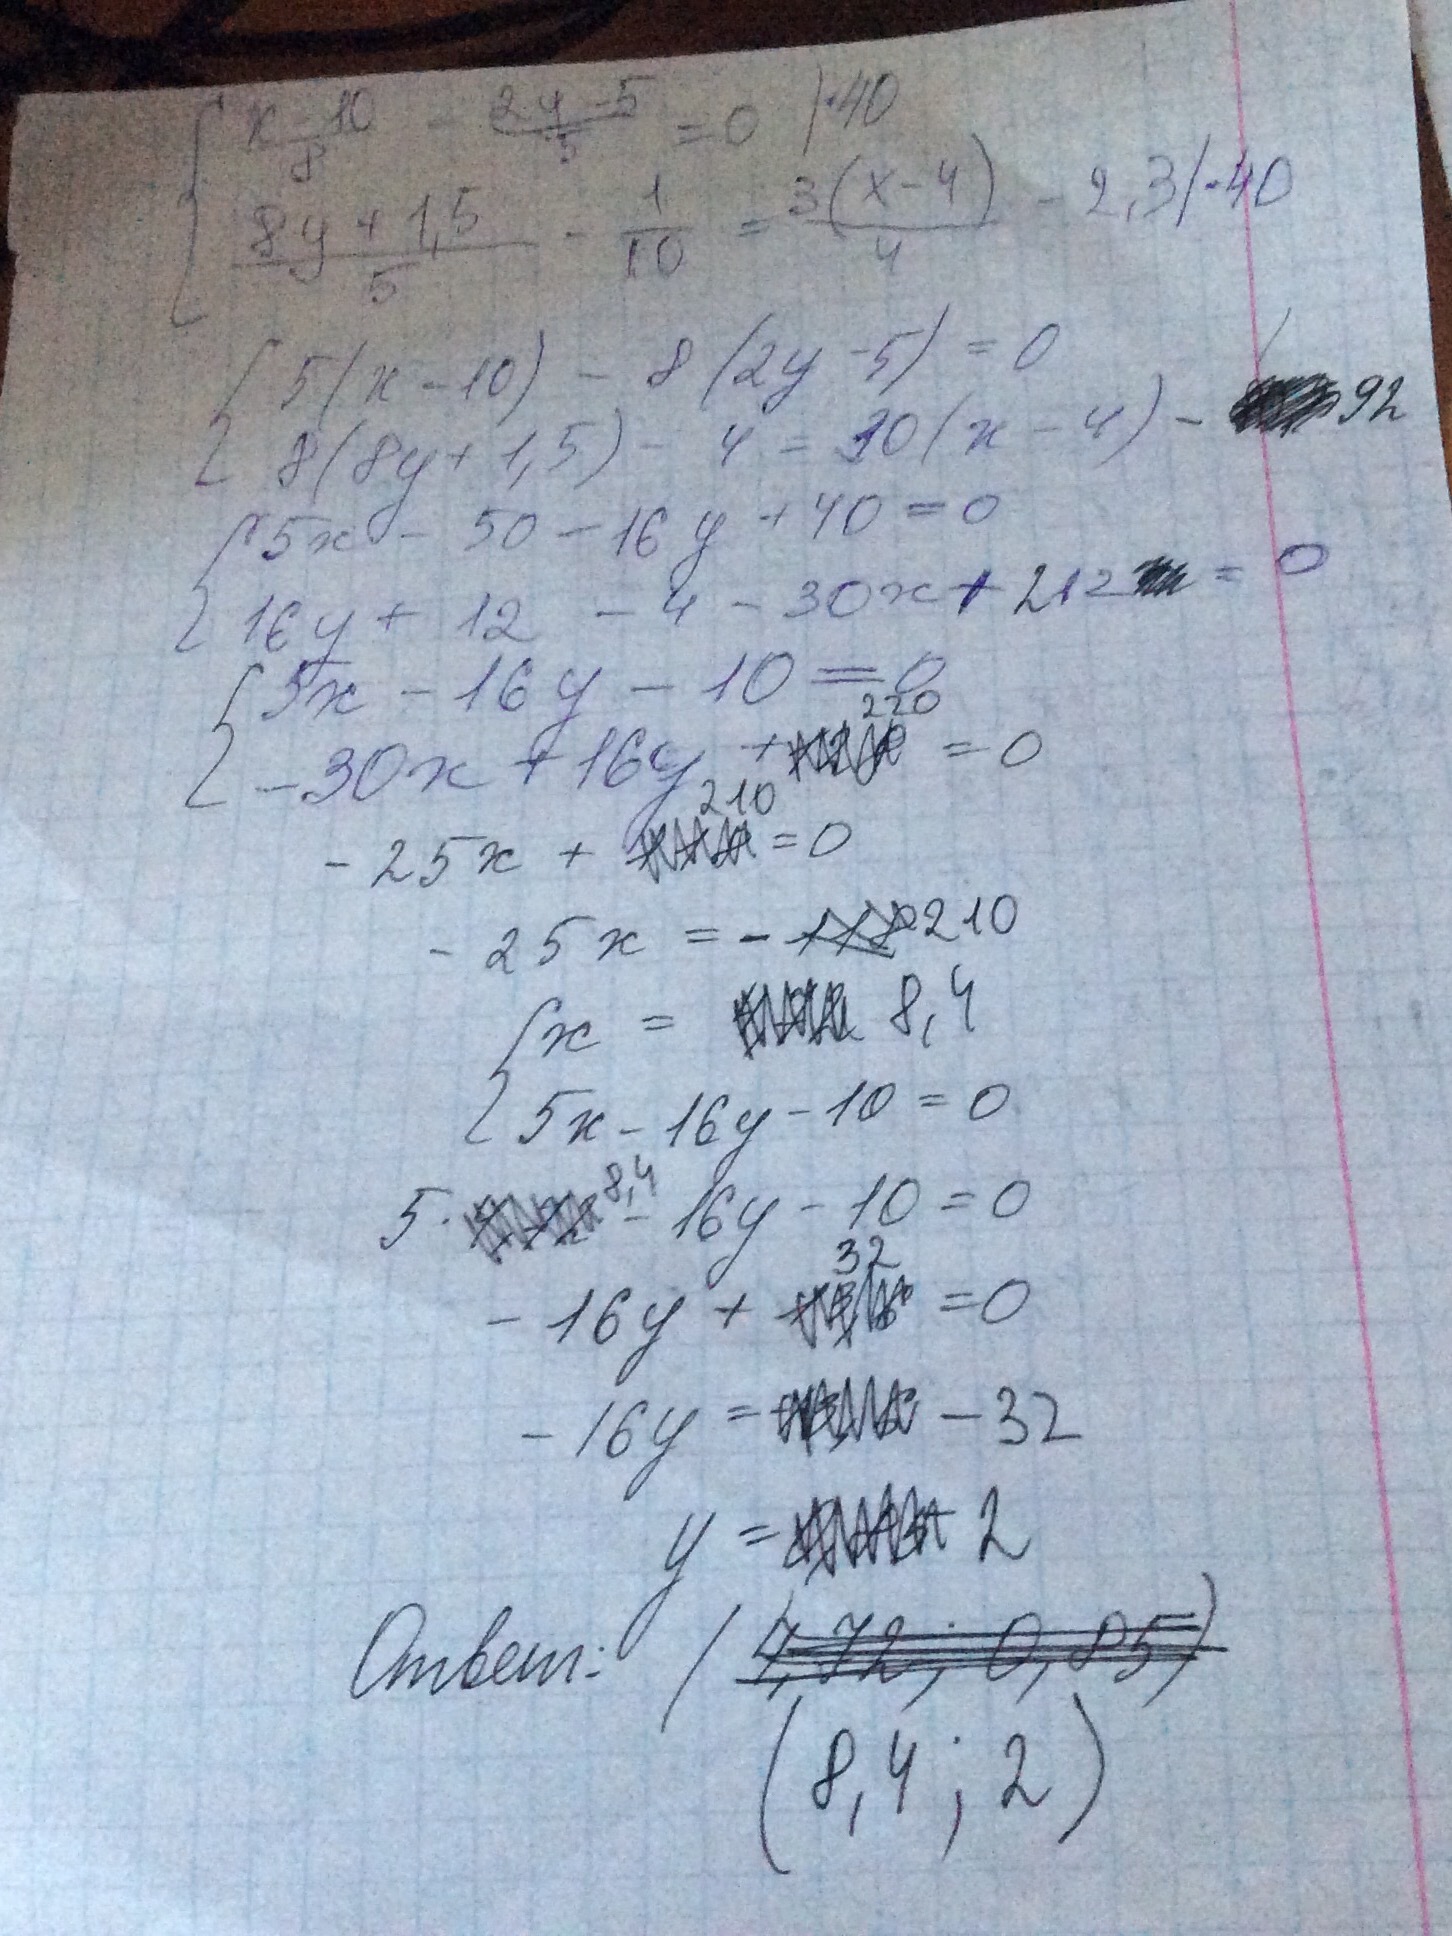 { x-10/8 - 2y-5/5 = 0 |·40
8y+1,5/5 - 1/10 = 3(x-4)/4 - 2,3|·40
{ 5(x-10) - 8(2y-5) = 0
8(8y+1,5) - 4 = 30(x-4) - 92
{ 5x - 50 - 16y + 40 = 0
16y + 12 - 4 - 30x + 212 = 0
{ 5x - 16y - 10 = 0
-30x + 16y + 220 = 0
-25x + 210 = 0
-25x = -210
{ x = 8,4
5x - 16y - 10 = 0
5·8,4 - 16y - 10 = 0
-16y + 32 = 0
-16y = -32
y = 2
Ответ: (7,72; 0,85)
(8,4; 2)